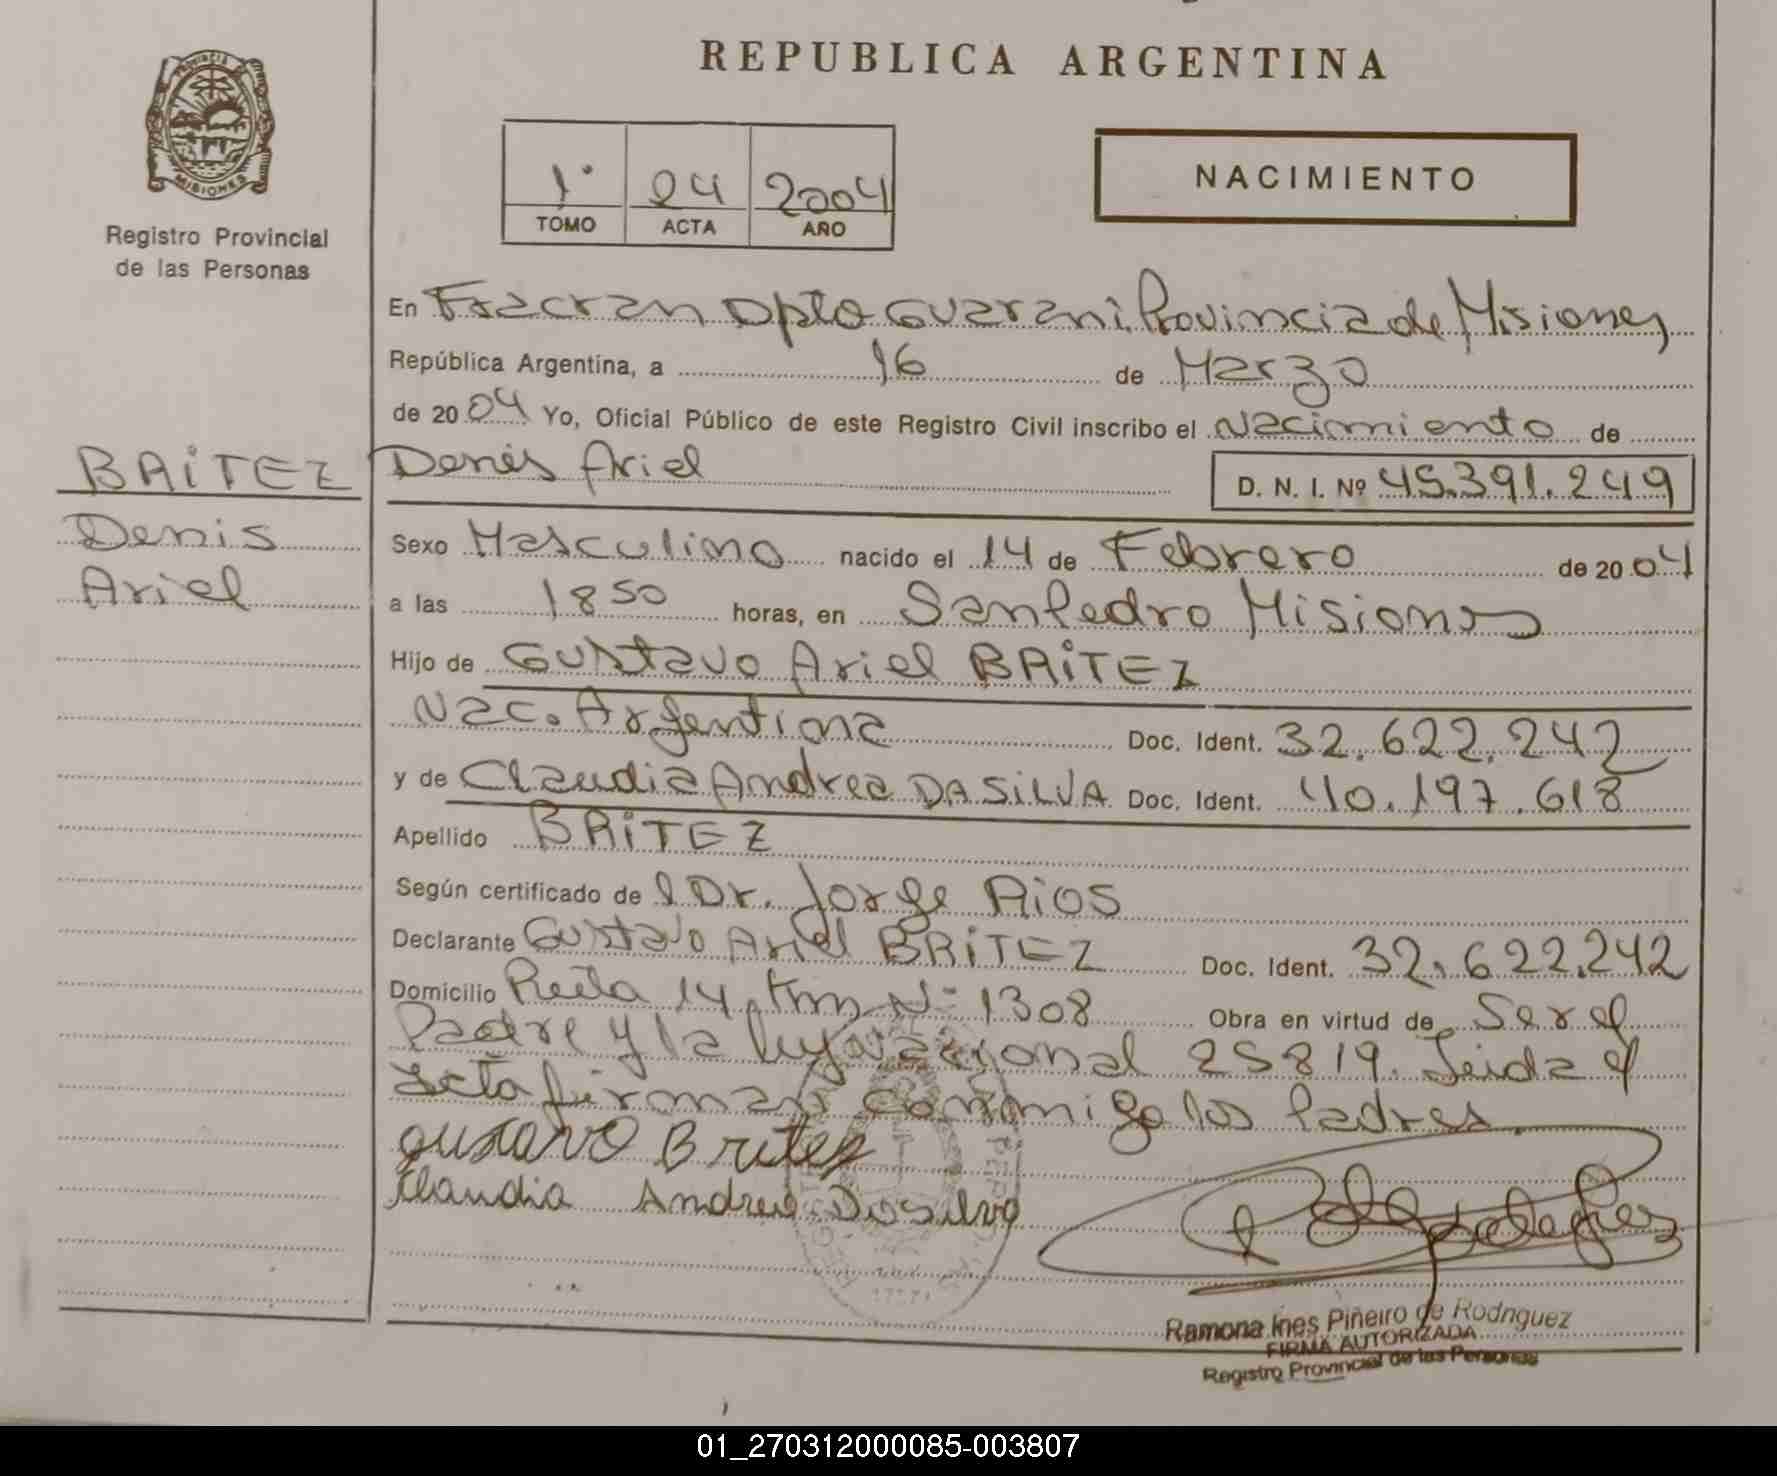 REPUBLICA ARGENTINA
PROVINCIA DE
MISIONES
Registro Provincial
de las Personas
1º 24 2004
TOMO ACTA AÑO
NACIMIENTO
En Fracran Dpto Guarani Provincia de Misiones
República Argentina, a 16 de Marzo
de 2004 Yo, Oficial Público de este Registro Civil inscribo el Nacimiento de
BRiTEZ
Denis
Ariel
Denis Ariel D. N. I. Nº 45.391.249
Sexo Masculino nacido el 14 de Febrero de 2004
a las 18 50 horas, en San Pedro Misiones
Hijo de Gustavo Ariel BRiTEZ
Nac. Argentina Doc. Ident. 32.622.242
y de Claudia Andrea DA SiLVA Doc. Ident. 40.197.618
Apellido BRiTEZ
Según certificado de l Dr. Jorge Rios
Declarante Gustavo Ariel BRiTEZ Doc. Ident. 32.622.242
Domicilio Ruta 14 Km Nº 1308 Obra en virtud de Ser el
Padre y la ley nacional 25819. Leida el
acta firman conmigo los Padres.
gustavo Britez
Claudia Andrea Dasilva
Ramona Ines Piñeiro de Rodriguez
FIRMA AUTORIZADA
Registro Provincial de las Personas
01_270312000085-003807